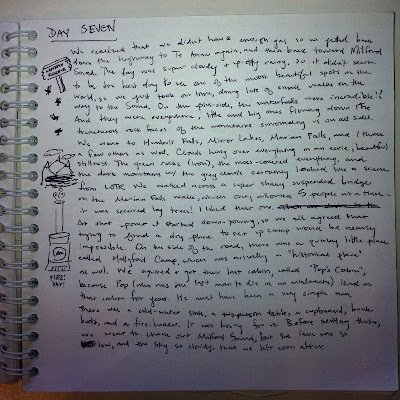 DAY SEVEN
We realized that we didn't have enough gas, so we went back
down the highway to Te Anau again, and then back toward Milford
Sound. The day was super cloudy + spotty rainy, so it didn't seem
to be the best day to see one of the most beautiful spots in the
world, so we just took our time, doing lots of small walks on the
way to the Sound. On the plus-side, the waterfalls were incredible!!
And they were everywhere, little and big ones flowing down the
treacherous rock faces of the mountains surrounding us on all sides.
We went to Humboldt Falls, Mirror Lakes, Marian Falls, and I think
a few others and clouds hung over everything in an eerie, beautiful
stillness. The green rocks (iron), the moss-covered everything, and
the dark mountains w/ the gray clouds certainly looked like a scene
from LOTR. We walked across a super shaky suspended bridge
on the Marian Falls walk, which only allowed 5 people at a time.
it was secured by trees! I liked that one
At that point it started down-pouring, so we all agreed that
trying to find a dry place to set up camp would be nearly
impossible. On the side of the road, there was a quirky little place
called Hollyford Camp, which was actually a "historical place"
as well. We inquired + got their last cabin, called "Pop's Cabin",
because Pop (who was the last man to die in an avalanche) lived in
that cabin for years. He must have been a very simple man.
There was a cold-water sink, a two-person table, a cupboard, bunk
beds, and a fire heater. It was loving for it. Before settling there,
we went to check out Milford Sound, but the lake was so
low, and the sky so cloudy, that we left soon after.
FIRE!
YAY!